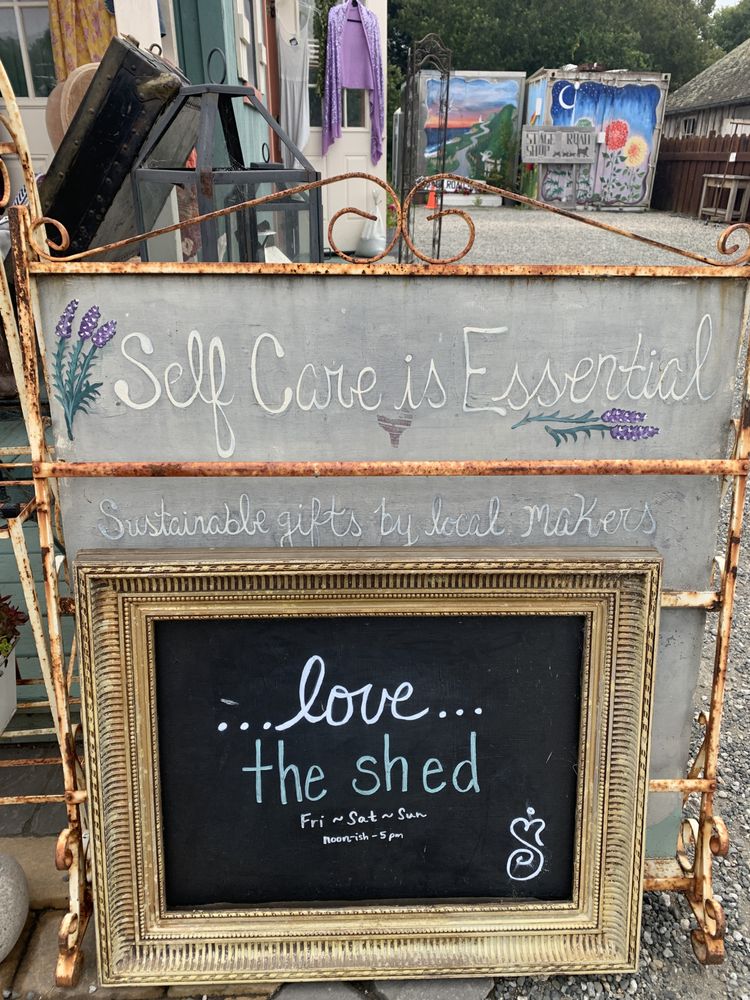 STAGE ROAD
SHOP
Self Care is Essential
Sustainable gifts by local makers
...love...
the shed
Fri ~ Sat ~ Sun
Noon-ish - 5pm